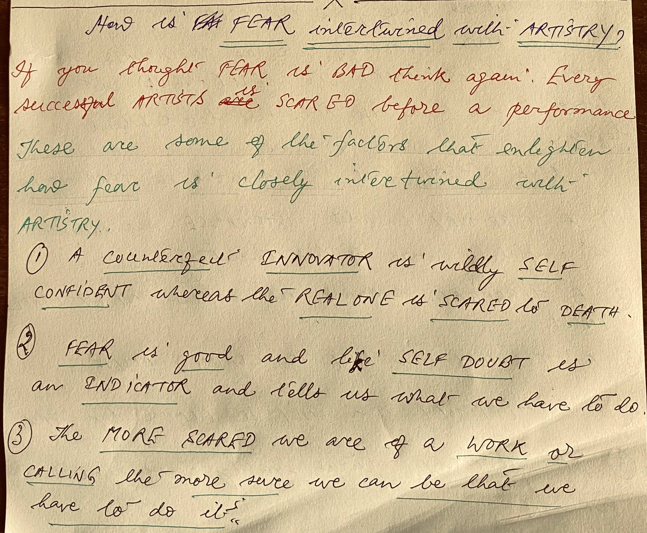 How is FEAR intertwined with ARTISTRY?
If you thought FEAR is BAD think again. Every
successful ARTISTS is SCARED before a performance
These are some of the factors that enlighten
how fear is closely intertwined with
ARTISTRY.
① A counterfeit INNOVATOR is wildly SELF
CONFIDENT whereas the REAL ONE is SCARED to DEATH.
② FEAR is good and like SELF DOUBT is
an INDICATOR and tells us what we have to do.
③ The MORE SCARED we are of a WORK or
CALLING the more sure we can be that we
have to do it."